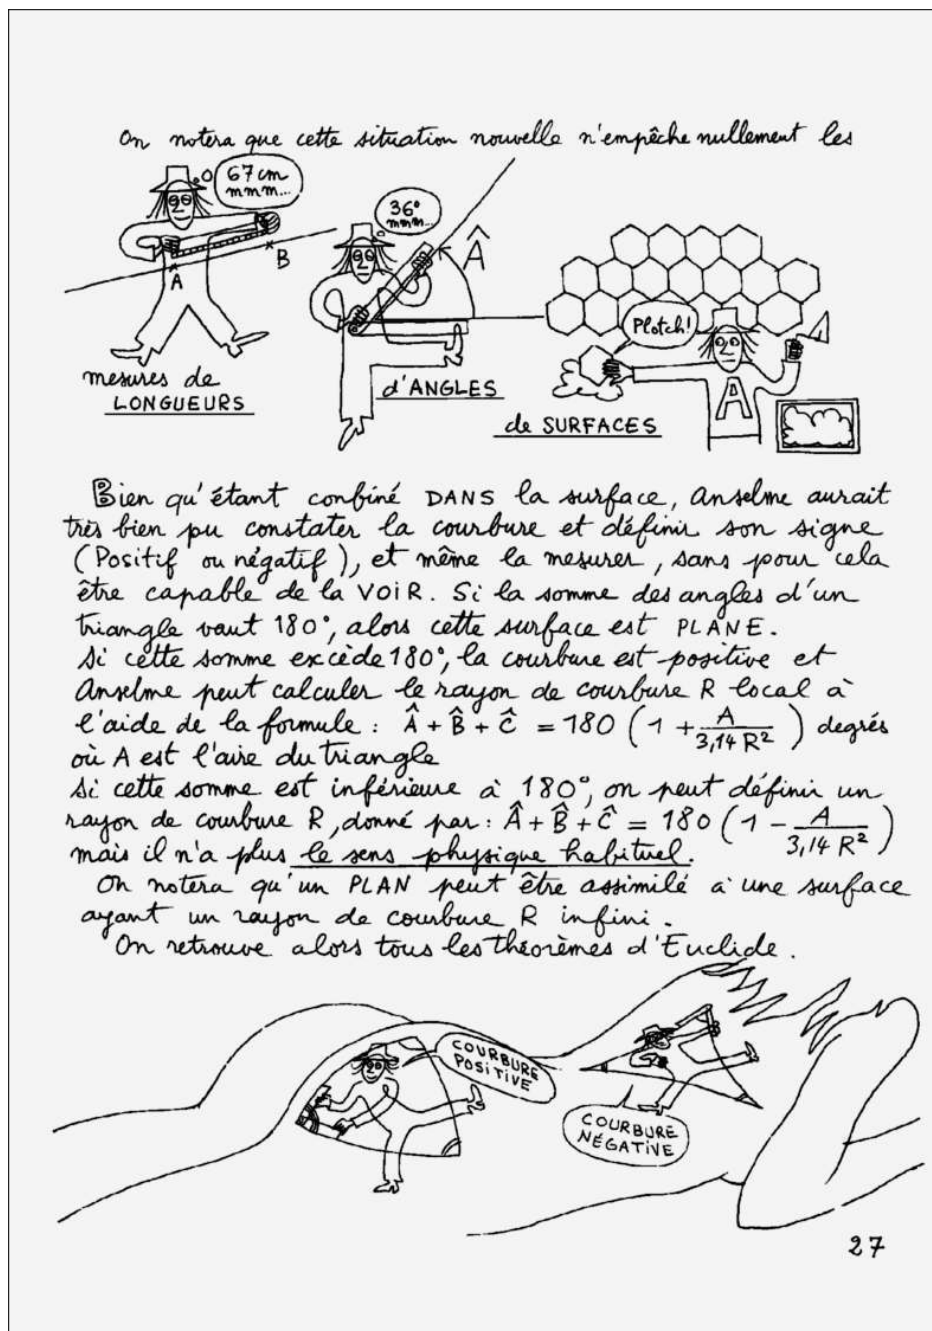 On notera que cette situation nouvelle n'empêche nullement les
67 cm
mmm...
A
B
mesures de
LONGUEURS
36°
mmm...
Â
d'ANGLES
Plotch!
A
de SURFACES
Bien qu'étant confiné DANS la surface, Anselme aurait
très bien pu constater la courbure et définir son signe
(Positif ou négatif), et même la mesurer, sans pour cela
être capable de la VOIR. Si la somme des angles d'un
triangle vaut 180°, alors cette surface est PLANE.
Si cette somme excède 180°, la courbure est positive et
Anselme peut calculer le rayon de courbure R local à
l'aide de la formule : Â + B̂ + Ĉ = 180 (1 + A / 3,14 R²) degrés
où A est l'aire du triangle
Si cette somme est inférieure à 180°, on peut définir un
rayon de courbure R, donné par : Â + B̂ + Ĉ = 180 (1 - A / 3,14 R²)
mais il n'a plus le sens physique habituel.
On notera qu'un PLAN peut être assimilé à une surface
ayant un rayon de courbure R infini.
On retrouve alors tous les théorèmes d'Euclide.
COURBURE
POSITIVE
COURBURE
NÉGATIVE
27